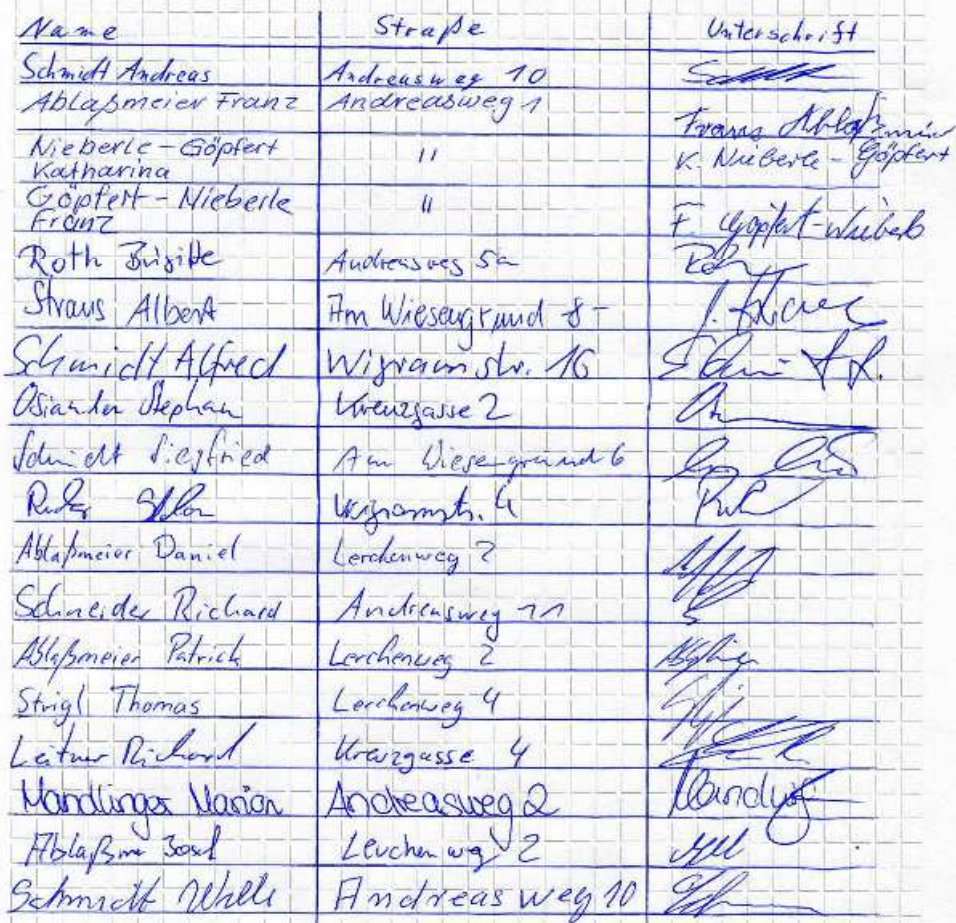 Name Straße Unterschrift
Schmidt Andreas Andreasweg 10
Ablaßmeier Franz Andreasweg 1 Franz Ablaßmeier
Nieberle-Göpfert " K. Nieberle-Göpfert
Katharina
Göpfert-Nieberle "
Franz F. Göpfert-Nieberle
Roth Brigitte Andreasweg 5a
Straus Albert Am Wiesengrund 8
Schmidt Alfred Wigramstr. 16
Osiander Stephan Kreuzgasse 2
Schmidt Siegfried Am Wiesengrund 6
Wigramstr. 4
Ablaßmeier Daniel Lerchenweg 2
Schneider Richard Andreasweg 11
Ablaßmeier Patrick Lerchenweg 2
Strigl Thomas Lerchenweg 4
Leitner Richard Kreuzgasse 4
Mandlinger Marion Andreasweg 2
Josef Lerchenweg 2
Schmidt Andreasweg 10